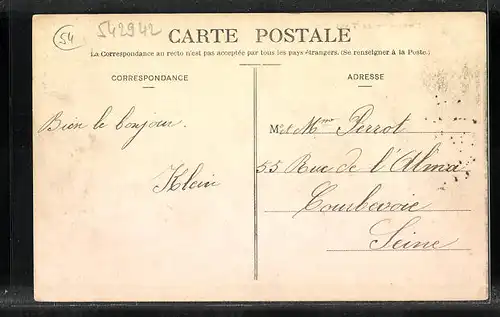 54
542942
CARTE POSTALE
La Correspondance au recto n'est pas acceptée par tous les pays étrangers. (Se renseigner à la Poste.)
CORRESPONDANCE
ADRESSE
Bien le bonjour.
Klein
M. et Mme Perrot
55 Rue de l'Alma
Courbevoie
Seine